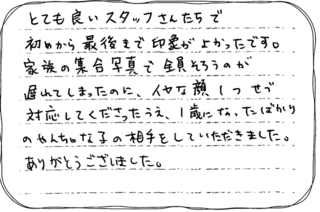 とても良いスタッフさんたちで
初めから最後まで印象がよかったです。
家族の集合写真で全員そろうのが
遅れてしまったのに、イヤな顔1つせず
対応してくださったうえ、1歳になったばかり
のやんちゃな子の相手をしていただきました。
ありがとうございました。